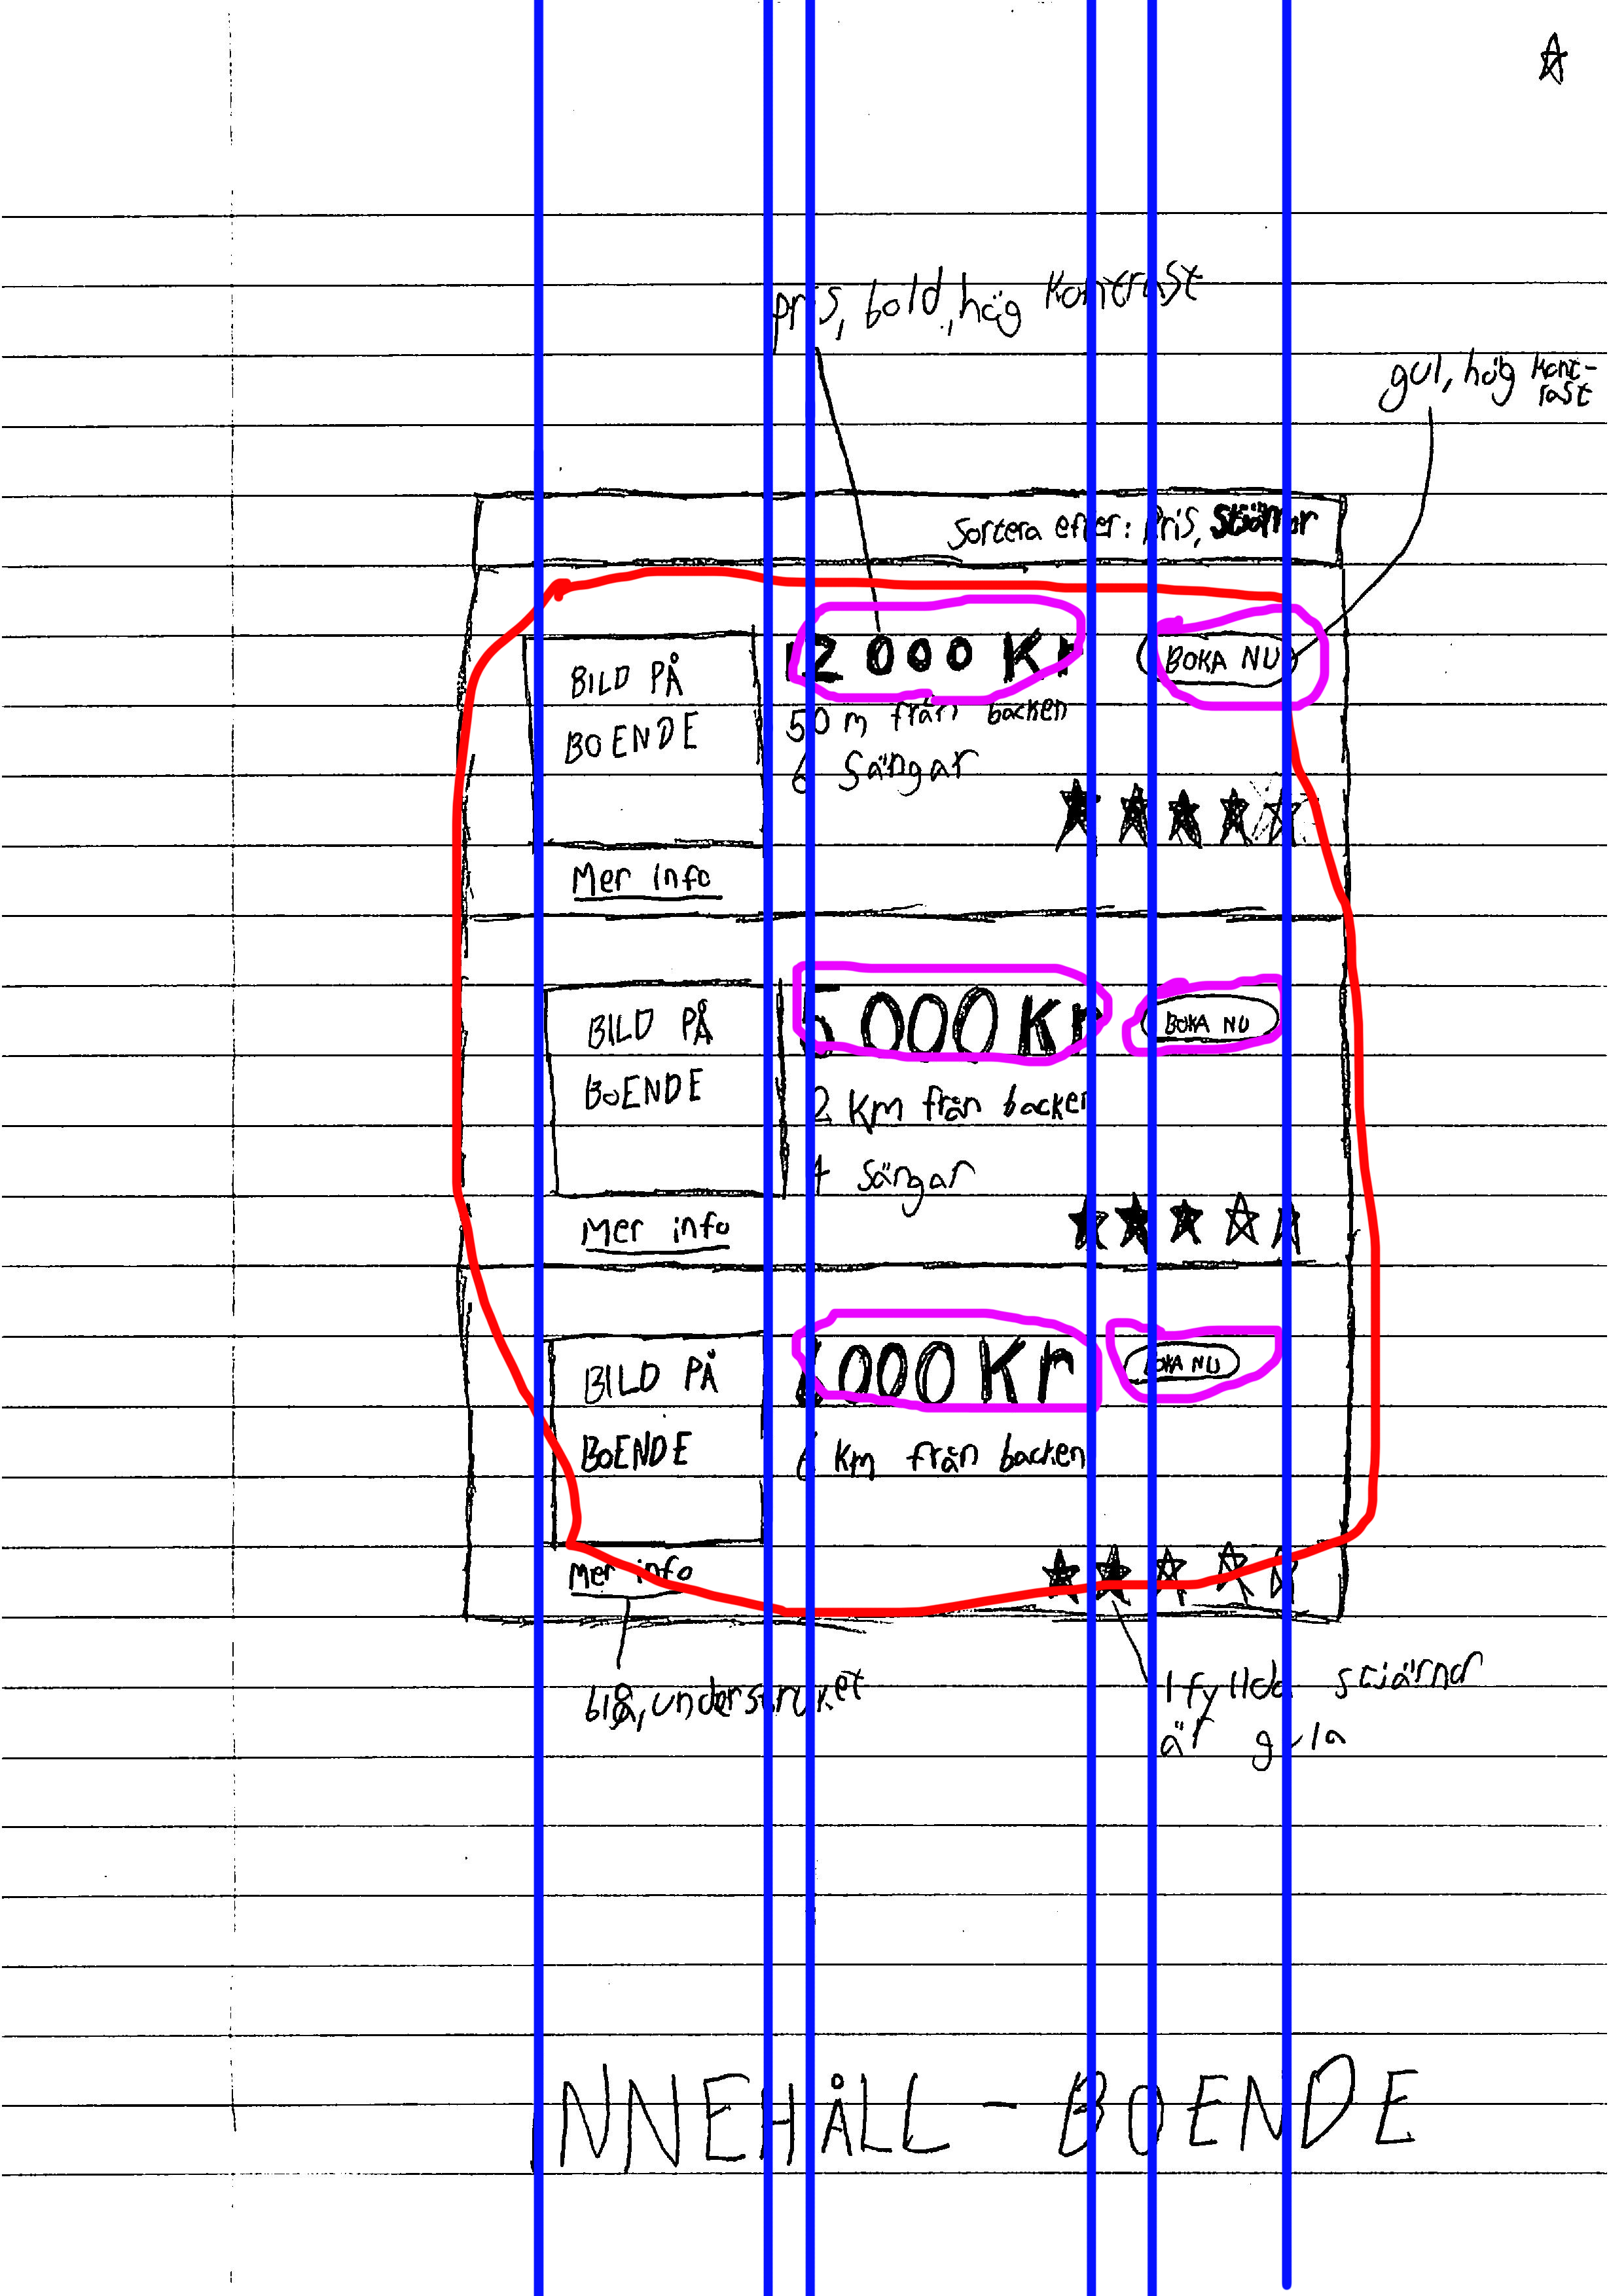 pris, bold, hög kontrast
gul, hög kont-
rast
Sortera efter: Pris, Stjärnor
BILD PÅ
BOENDE
12 000 Kr
BOKA NU
50 m från backen
6 Sängar
Mer info
BILD PÅ
BOENDE
5 000 Kr
BOKA NU
2 Km från backen
4 Sängar
Mer info
BILD PÅ
BOENDE
000 Kr
BOKA NU
6 Km från backen
Mer info
blå, understruket
Ifyllda stjärnor
är gula
INNEHÅLL - BOENDE